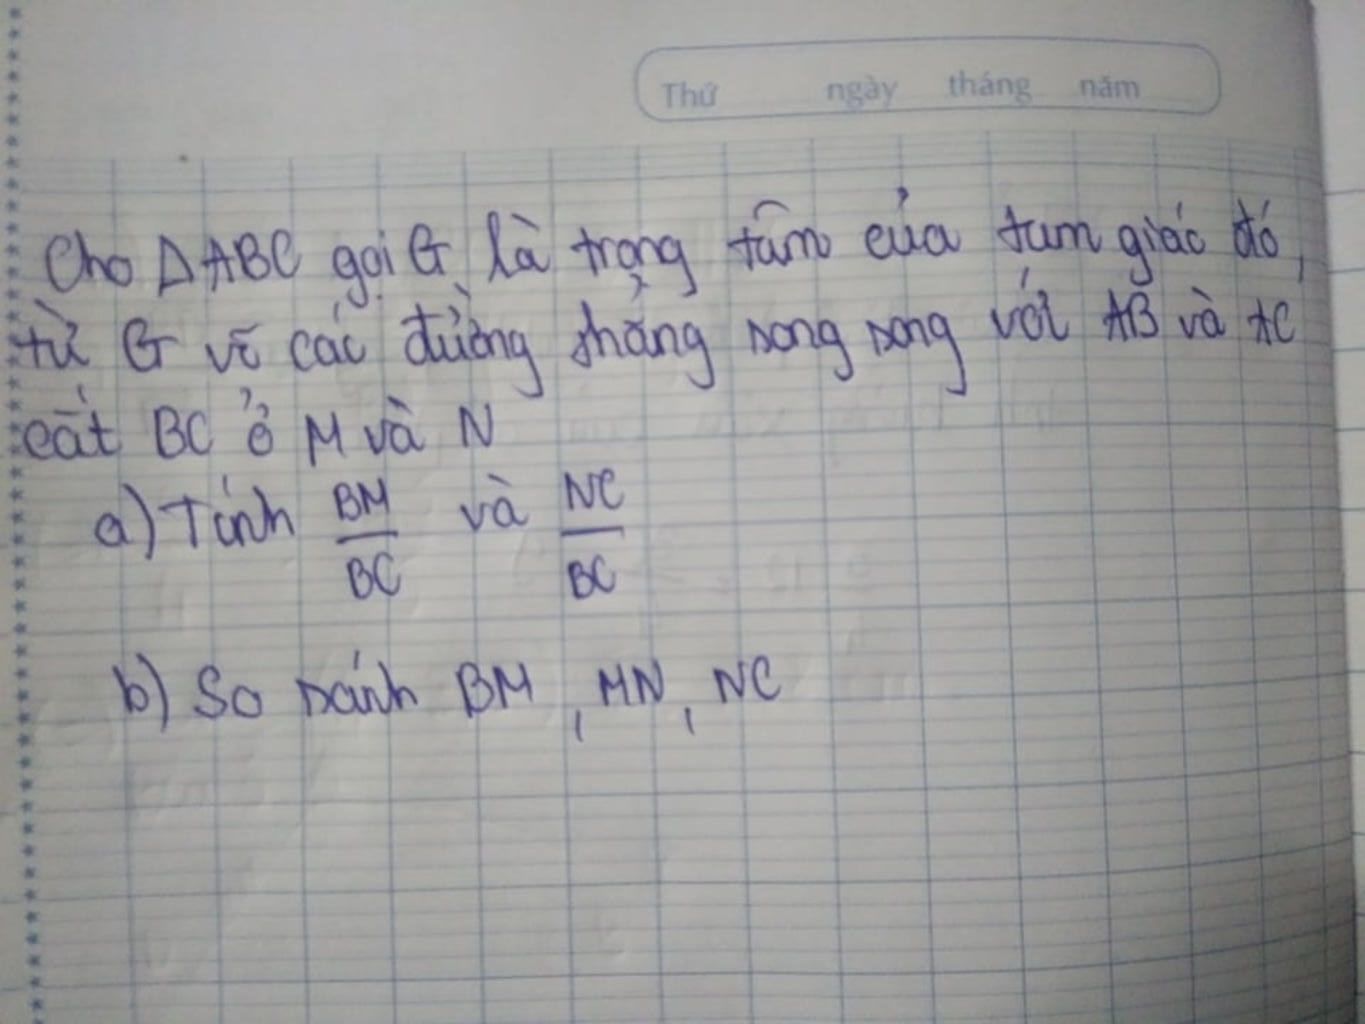 Thứ ngày tháng năm
Cho △ABC gọi G là trọng tâm của tam giác đó,
từ G vẽ các đường thẳng song song với AB và AC
cắt BC ở M và N
a) Tính BM/BC và NC/BC
b) So sánh BM, MN, NC